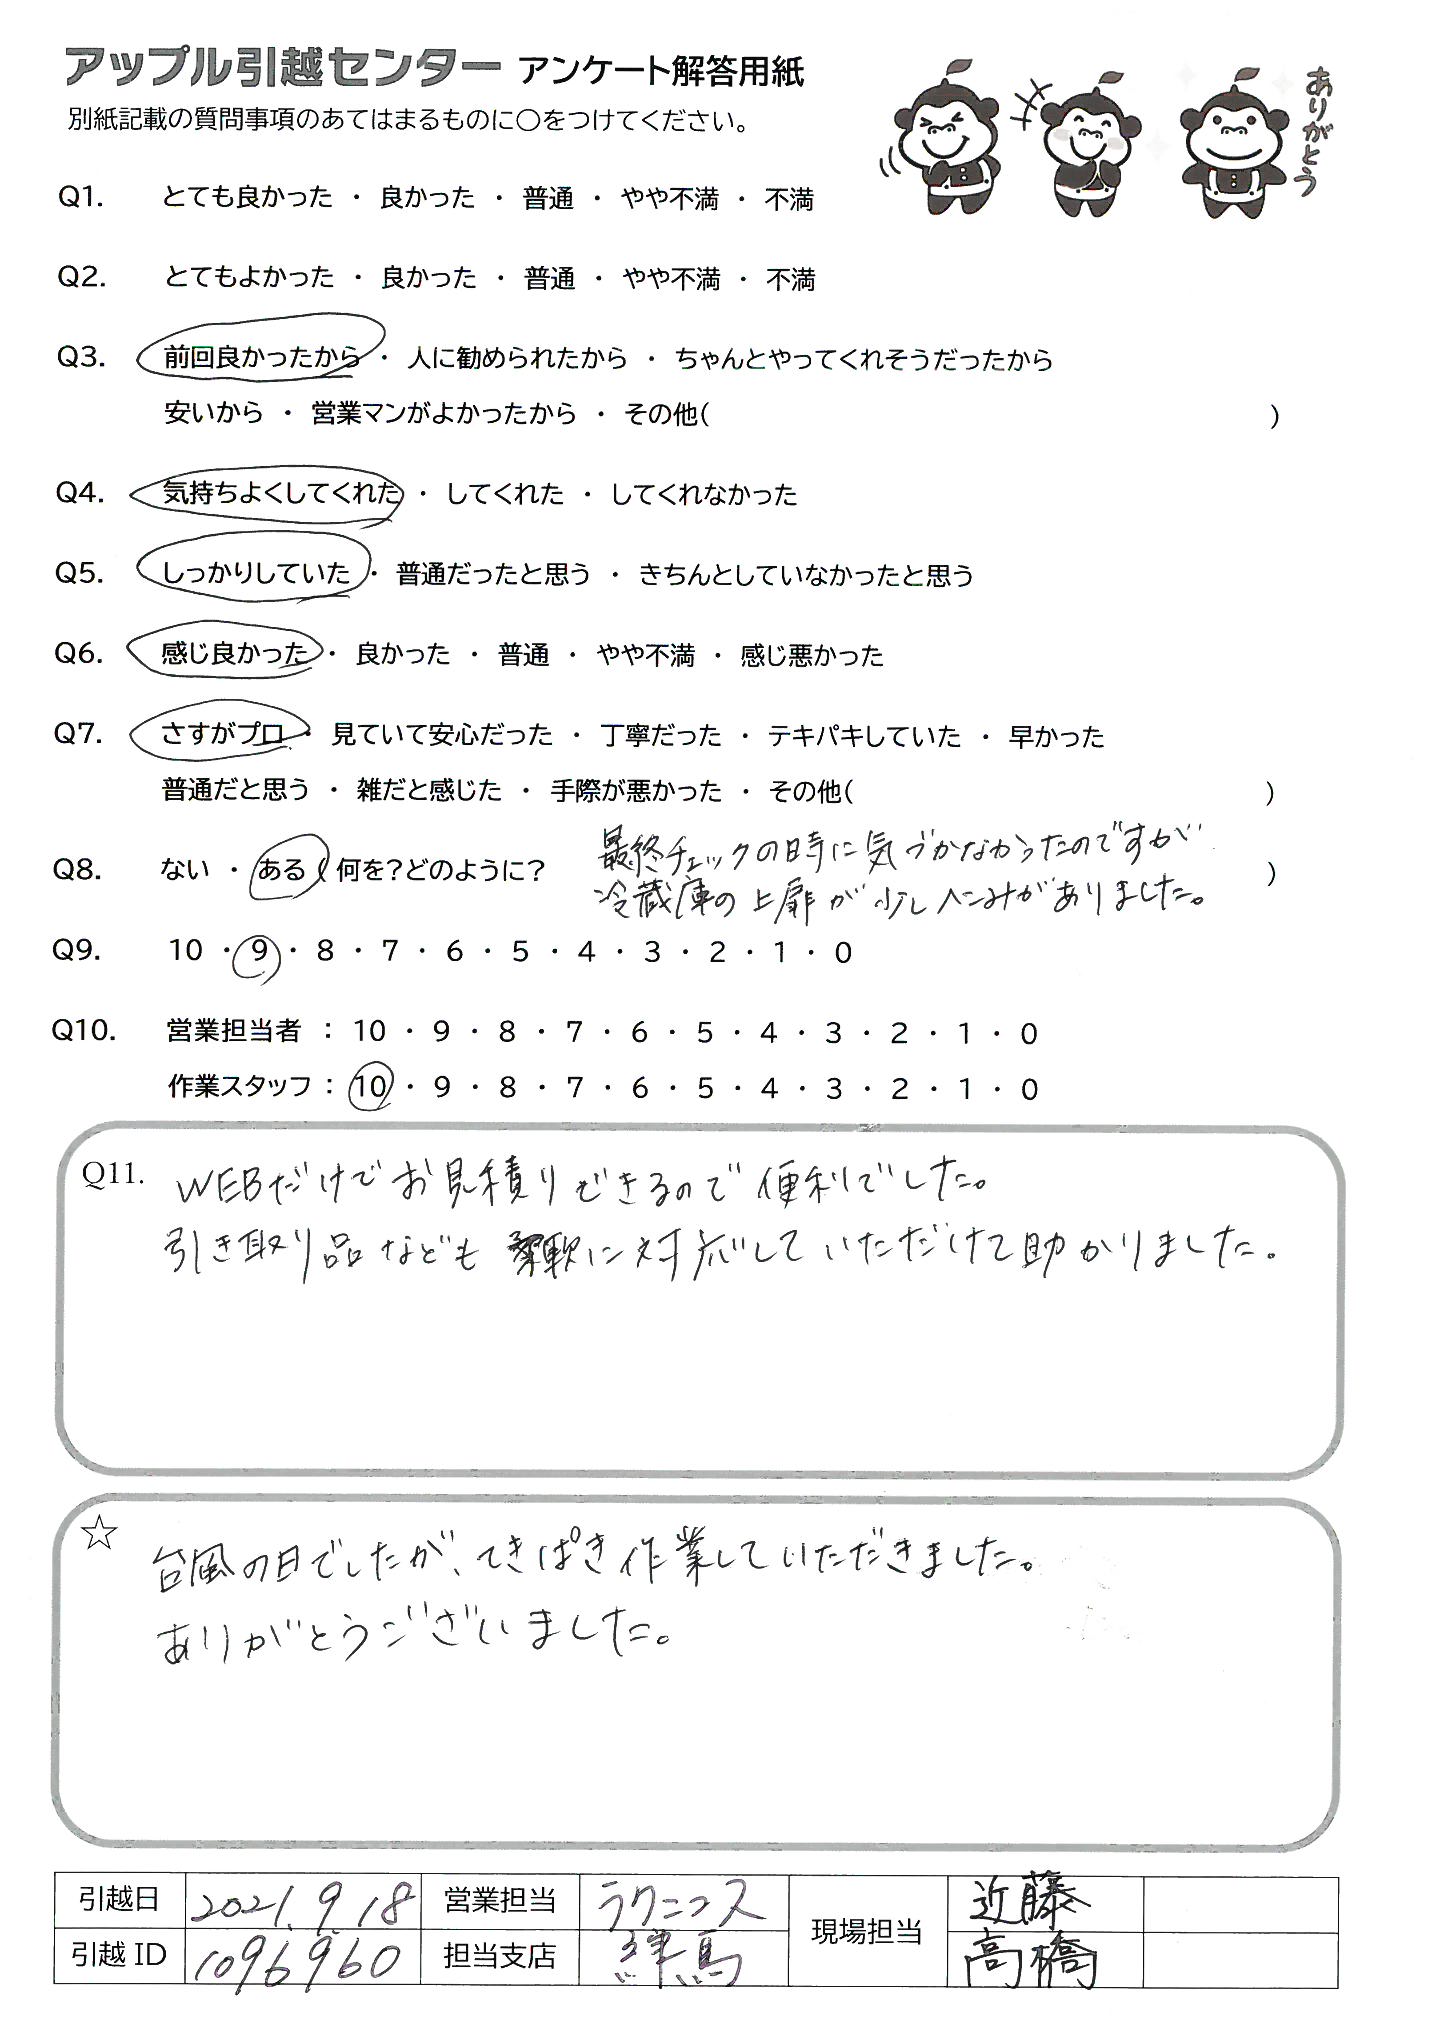 アップル引越センター アンケート解答用紙
別紙記載の質問事項のあてはまるものに○をつけてください。
ありがとう
Q1. とても良かった ・ 良かった ・ 普通 ・ やや不満 ・ 不満
Q2. とてもよかった ・ 良かった ・ 普通 ・ やや不満 ・ 不満
Q3. 前回良かったから ・ 人に勧められたから ・ ちゃんとやってくれそうだったから
安いから ・ 営業マンがよかったから ・ その他( )
Q4. 気持ちよくしてくれた ・ してくれた ・ してくれなかった
Q5. しっかりしていた ・ 普通だったと思う ・ きちんとしていなかったと思う
Q6. 感じ良かった ・ 良かった ・ 普通 ・ やや不満 ・ 感じ悪かった
Q7. さすがプロ ・ 見ていて安心だった ・ 丁寧だった ・ テキパキしていた ・ 早かった
普通だと思う ・ 雑だと感じた ・ 手際が悪かった ・ その他( )
最終チェックの時に気づかなかったのですが
Q8. ない ・ ある ( 何を?どのように? )
冷蔵庫の上扉が少しへこみがありました。
Q9. 10 ・ 9 ・ 8 ・ 7 ・ 6 ・ 5 ・ 4 ・ 3 ・ 2 ・ 1 ・ 0
Q10. 営業担当者 : 10 ・ 9 ・ 8 ・ 7 ・ 6 ・ 5 ・ 4 ・ 3 ・ 2 ・ 1 ・ 0
作業スタッフ : 10 ・ 9 ・ 8 ・ 7 ・ 6 ・ 5 ・ 4 ・ 3 ・ 2 ・ 1 ・ 0
Q11. WEBだけでお見積りできるので便利でした。
引き取り品なども柔軟に対応していただけて助かりました。
☆
台風の日でしたが、てきぱき作業していただきました。
ありがとうございました。
引越日 2021.9.18 営業担当 ラクニコス 現場担当 近藤
引越ID 1096960 担当支店 練馬 高橋